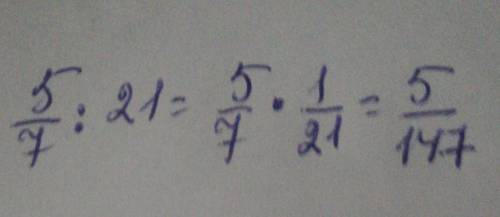 5/7 : 21 = 5/7 · 1/21 = 5/147